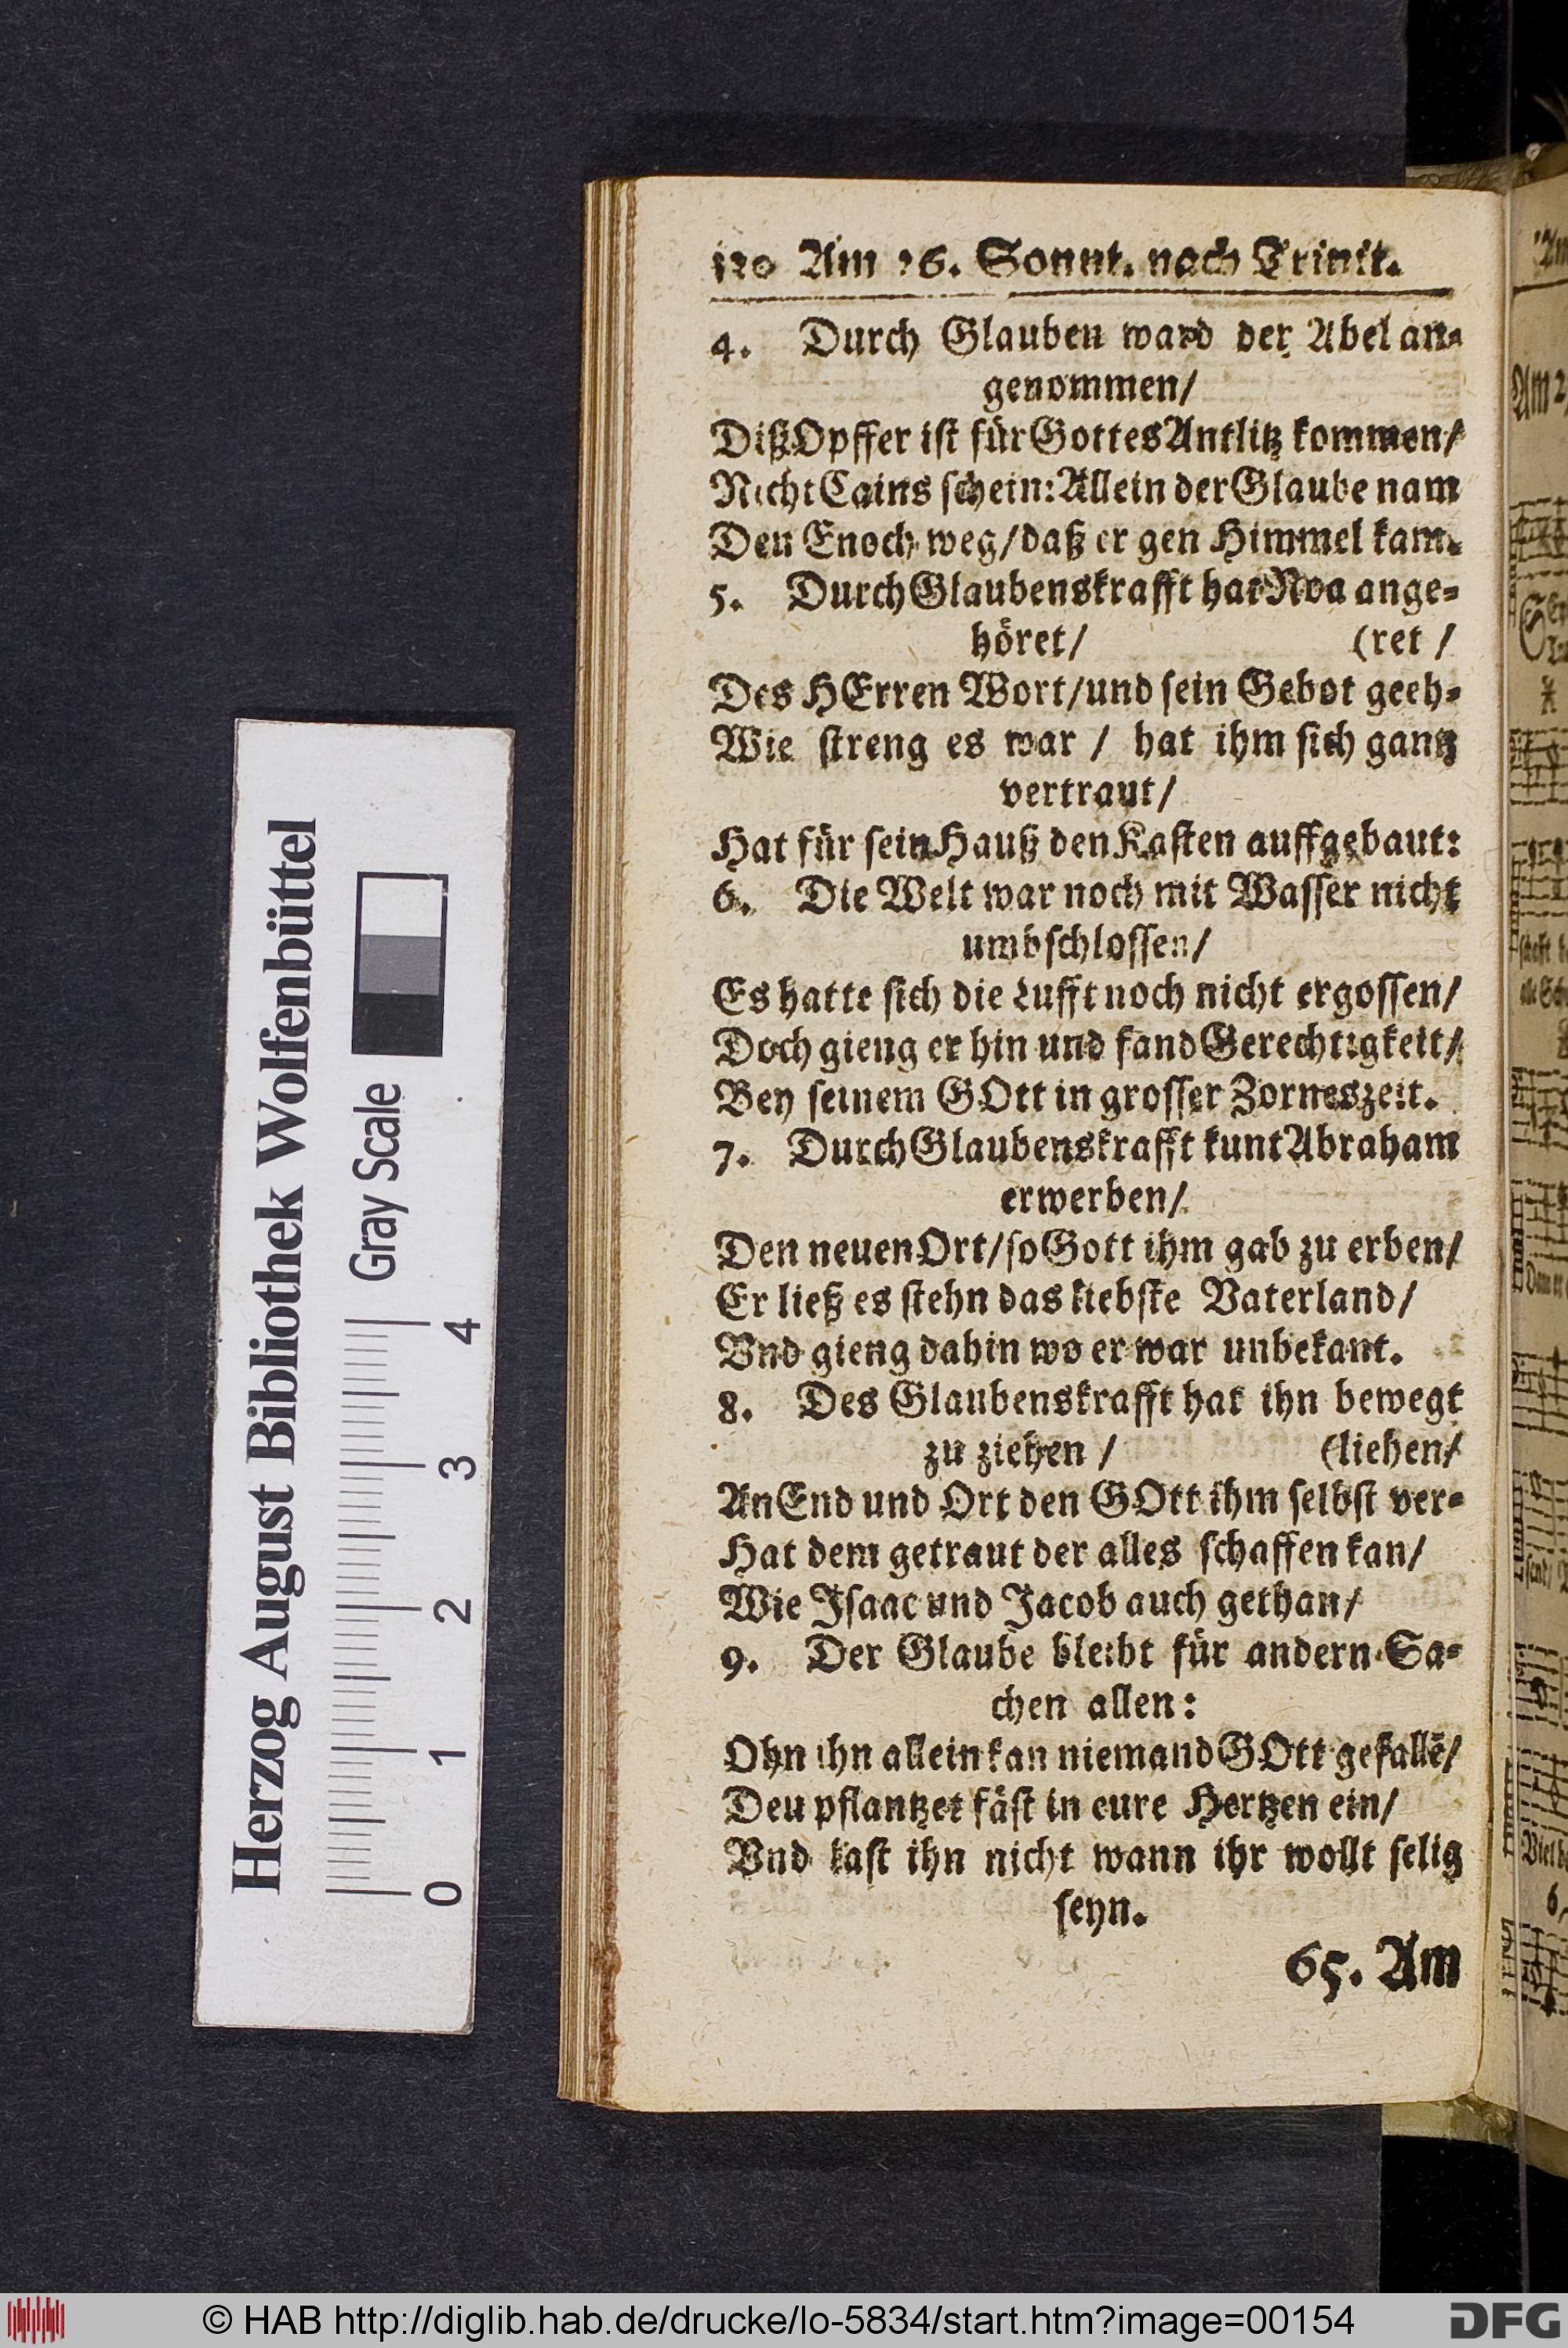 120 Am 26. Sonnt. nach Trinit.
4. Durch Glauben ward der Abel an-
genommen/
Diß Opffer ist für Gottes Antlitz kommen/
Nicht Cains schein: Allein der Glaube nam
Den Enoch weg/ daß er gen Himmel kam.
5. Durch Glaubenskrafft hat Noa ange-
höret/ (ret /
Des HErren Wort/ und sein Gebot geeh-
Wie streng es war / hat ihm sich gantz
vertraut/
Hat für sein Hauß den Kasten auffgebaut:
6. Die Welt war noch mit Wasser nicht
umbschlossen/
Es hatte sich die Lufft noch nicht ergossen/
Doch gieng er hin und fand Gerechtigkeit/
Bey seinem GOtt in grosser Zorneszeit.
7. Durch Glaubenskrafft kunt Abraham
erwerben/
Den neuen Ort/ so Gott ihm gab zu erben/
Er ließ es stehn das liebste Vaterland/
Vnd gieng dahin wo er war unbekant.
8. Des Glaubenskrafft hat ihn bewegt
zu ziehen / (liehen/
An End und Ort den GOtt ihm selbst ver-
Hat dem getraut der alles schaffen kan/
Wie Isaac und Jacob auch gethan/
9. Der Glaube bleibt für andern Sa-
chen allen:
Ohn ihn allein kan niemand GOtt gefallē/
Den pflantzet fäst in eure Hertzen ein/
Vnd last ihn nicht wann ihr wollt selig
seyn.
65. Am
Herzog August Bibliothek Wolfenbüttel
Gray Scale
0 1 2 3 4
Am 2
© HAB http://diglib.hab.de/drucke/lo-5834/start.htm?image=00154
DFG